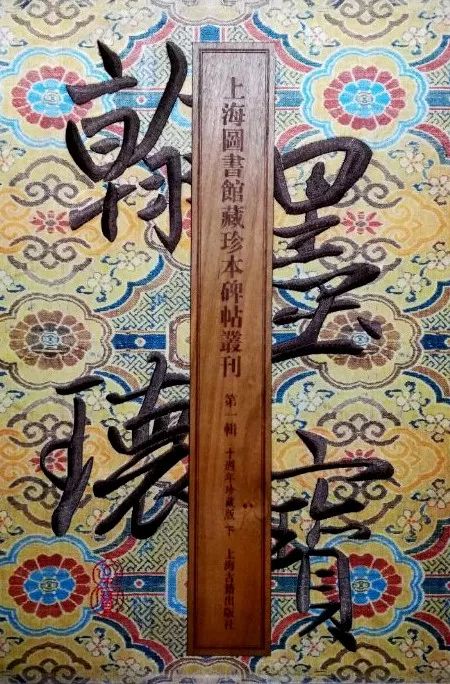 翰墨
瓌寶
上海圖書館藏珍本碑帖叢刊 第一輯 十週年珍藏版 下 上海古籍出版社